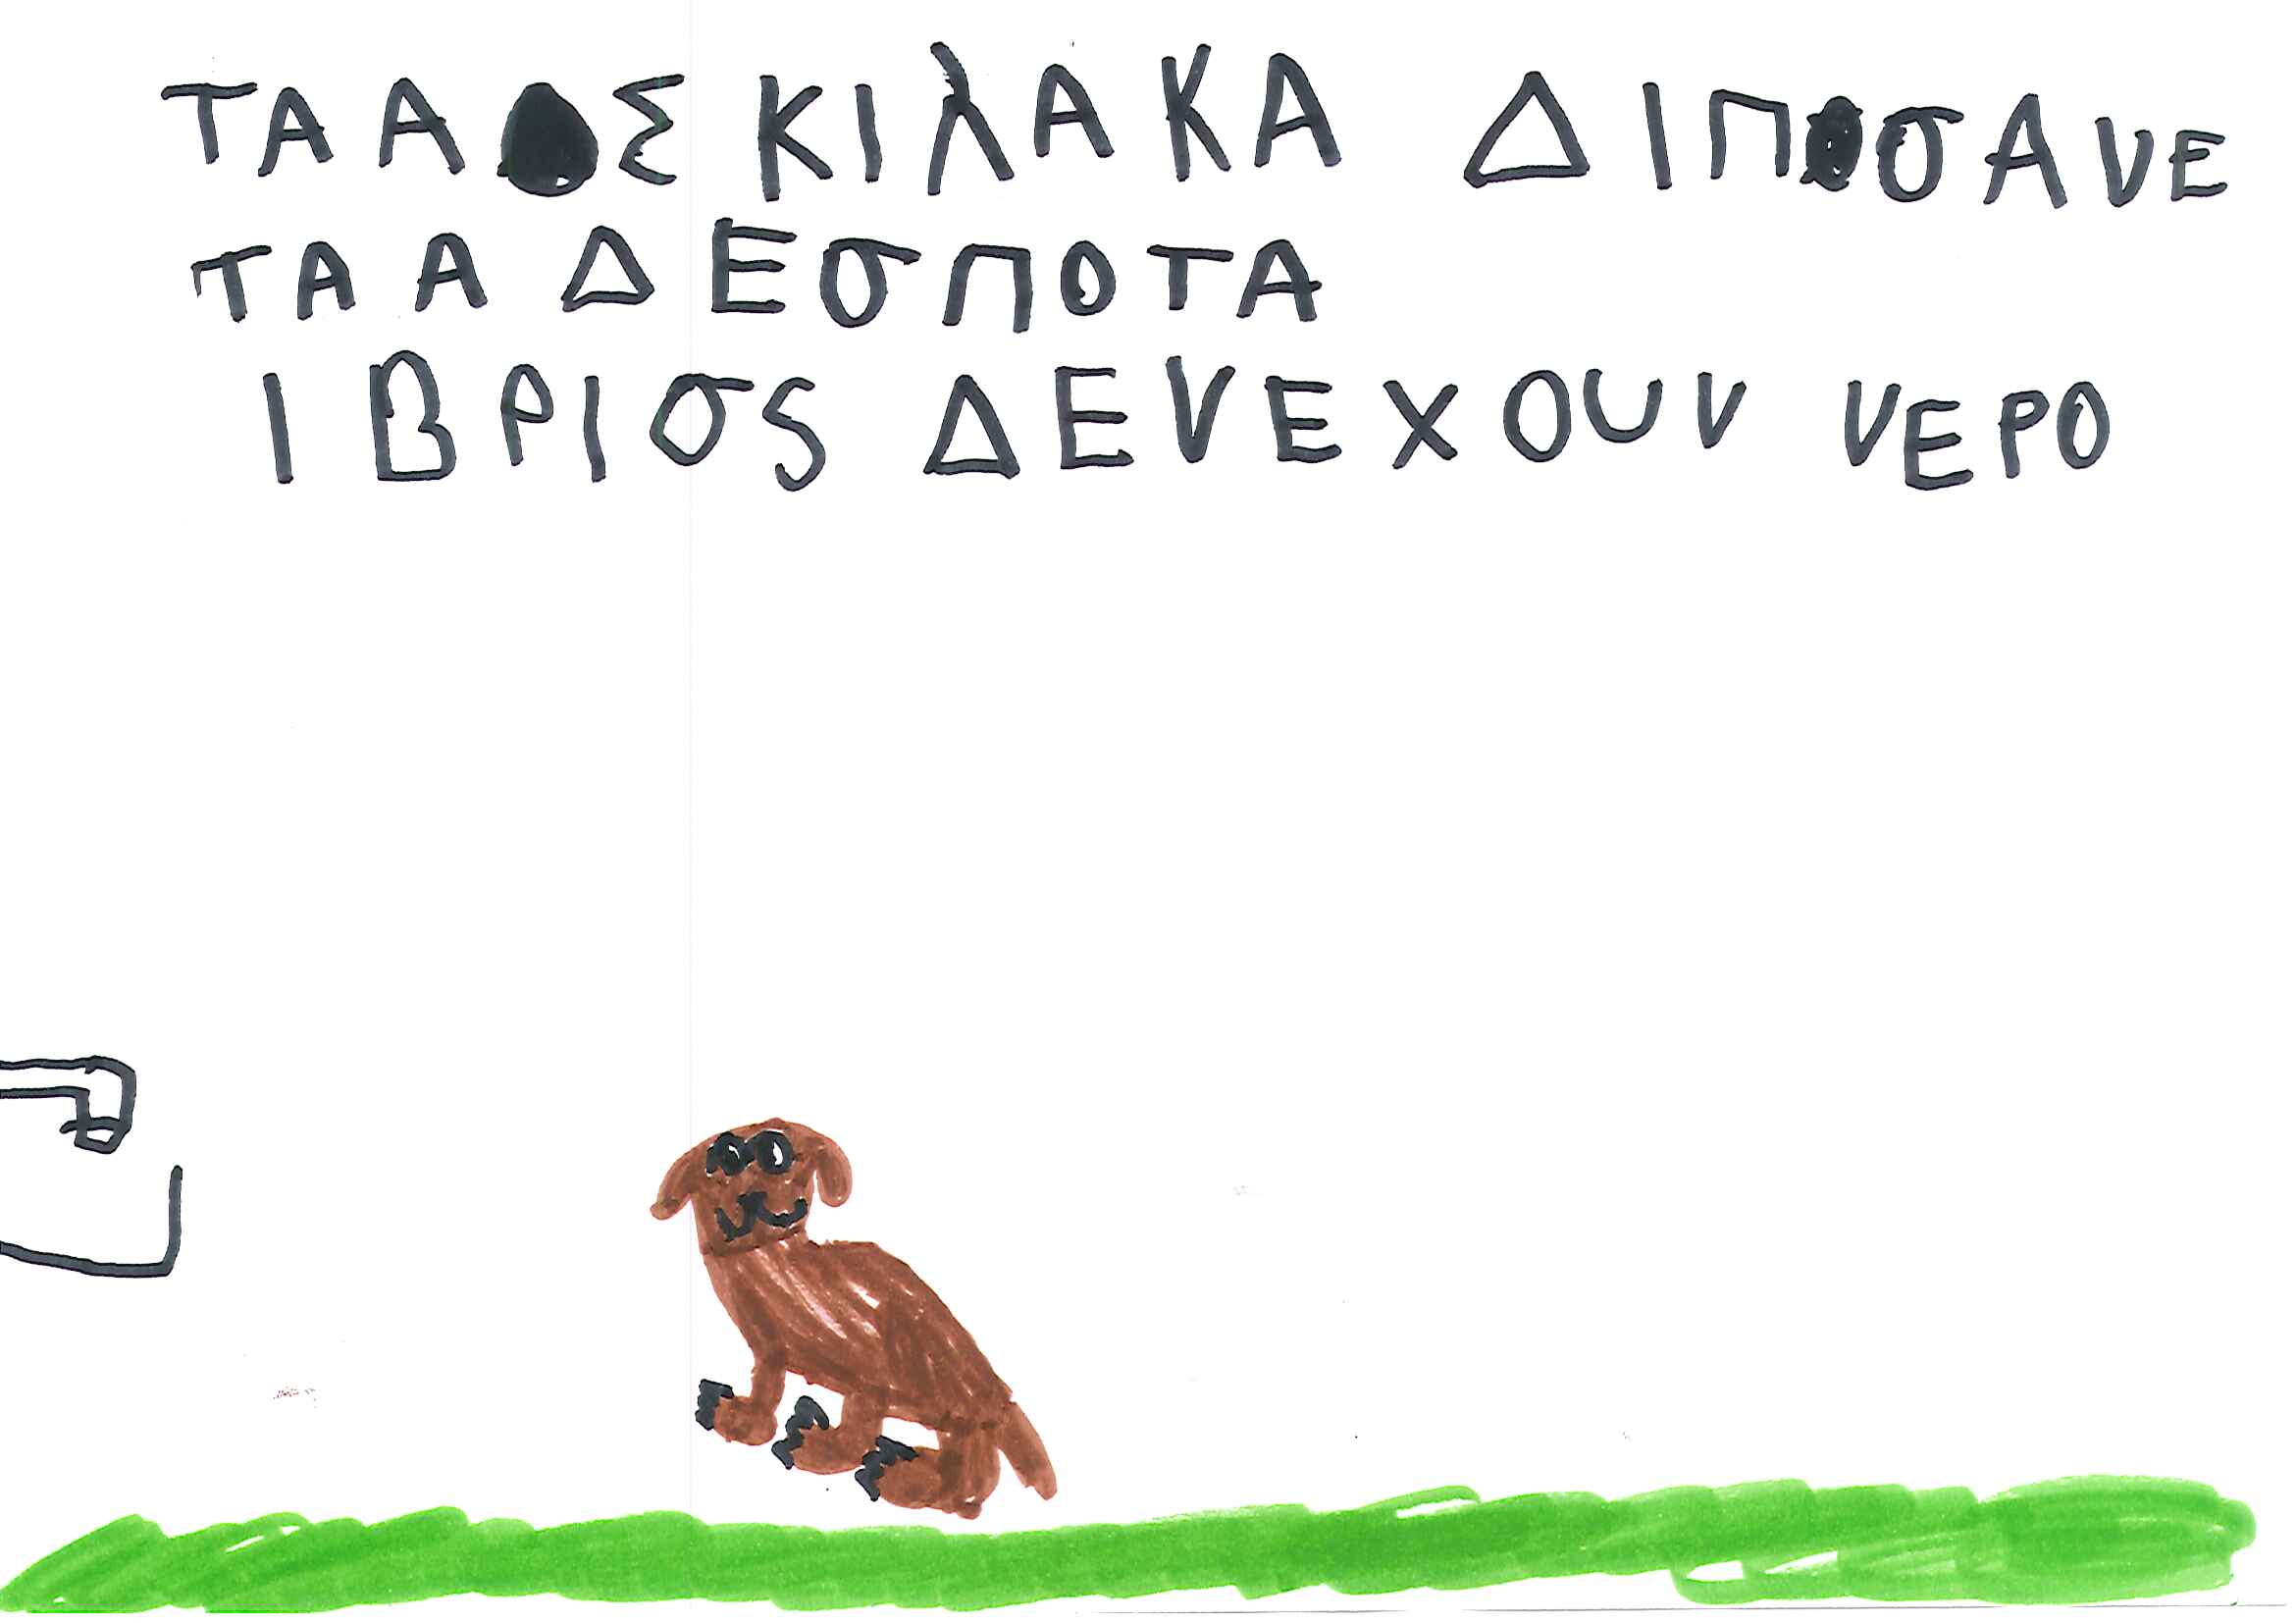 ΤΑ Α ΣΚΙλΑΚΑ ΔΙΠσΑνΕ
ΤΑ ΑΔΕσΠΟΤΑ
Ι ΒΡΙσς ΔΕνΕΧΟυν νΕΡΟ